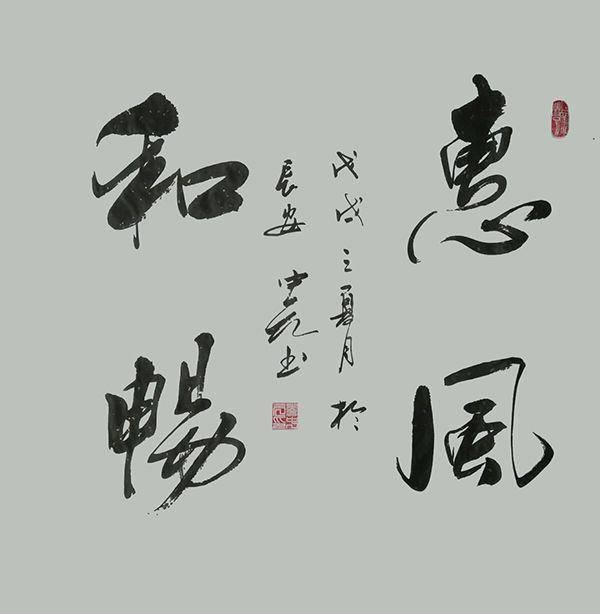 惠風
和暢
戊戌之夏月於
長安 書